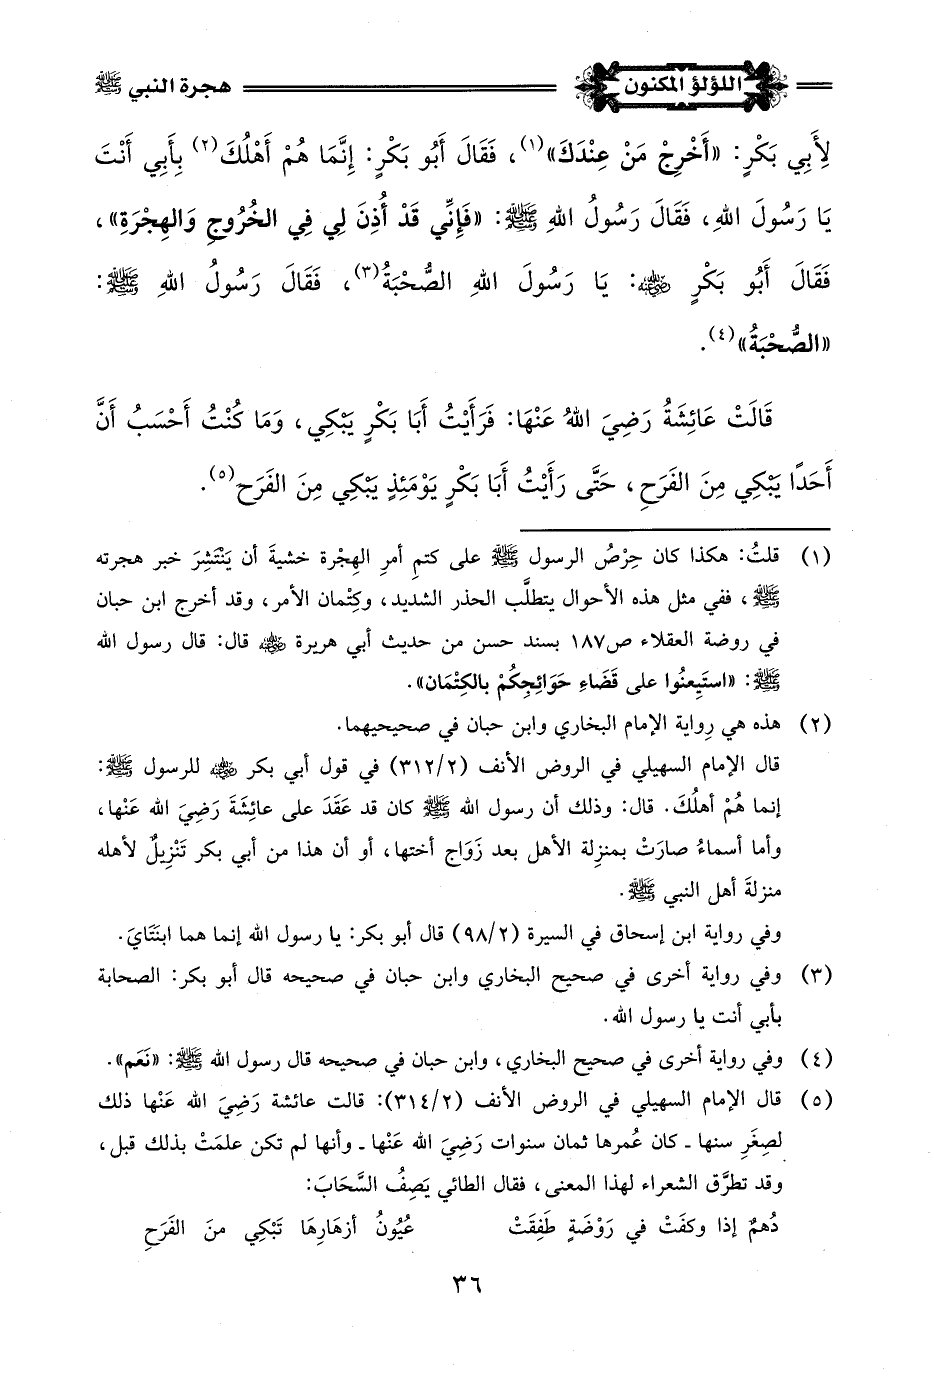 اللؤلؤ المكنون هجرة النبي ﷺ
لِأَبِي بَكْرٍ: «أَخْرِجْ مَنْ عِنْدَكَ»(١)، فَقَالَ أَبُو بَكْرٍ: إِنَّمَا هُمْ أَهْلُكَ(٢) بِأَبِي أَنْتَ
يَا رَسُولَ اللهِ، فَقَالَ رَسُولُ اللهِ ﷺ: «فَإِنِّي قَدْ أُذِنَ لِي فِي الخُرُوجِ وَالهِجْرَةِ»،
فَقَالَ أَبُو بَكْرٍ رضي الله عنه: يَا رَسُولَ اللهِ الصُّحْبَةُ(٣)، فَقَالَ رَسُولُ اللهِ ﷺ:
«الصُّحْبَةُ»(٤).
قَالَتْ عَائِشَةُ رَضِيَ اللهُ عَنْهَا: فَرَأَيْتُ أَبَا بَكْرٍ يَبْكِي، وَمَا كُنْتُ أَحْسَبُ أَنَّ
أَحَدًا يَبْكِي مِنَ الفَرَحِ، حَتَّى رَأَيْتُ أَبَا بَكْرٍ يَوْمَئِذٍ يَبْكِي مِنَ الفَرَحِ(٥).
(١) قلتُ: هكذا كان حِرْصُ الرسول ﷺ على كتمِ أمرِ الهِجْرة خشيةَ أن يَنْتَشِرَ خبر هجرته
ﷺ، ففي مثل هذه الأحوال يتطلَّب الحذر الشديد، وكِتْمان الأمر، وقد أخرج ابن حبان
في روضة العقلاء ص١٨٧ بسند حسن من حديث أبي هريرة رضي الله عنه قال: قال رسول الله
ﷺ: «استَعِينُوا على قَضَاءِ حَوَائِجِكُمْ بالكِتْمَان».
(٢) هذه هي رِواية الإمام البخاري وابن حبان في صحيحيهما.
قال الإمام السهيلي في الروض الأنف (٣١٢/٢) في قول أبي بكر رضي الله عنه للرسول ﷺ:
إنما هُمْ أهلُكَ. قال: وذلك أن رسول الله ﷺ كان قد عَقَدَ على عائِشَةَ رَضِيَ الله عَنْها،
وأما أسماءُ صارَتْ بمنزِلة الأهل بعد زَوَاج أختها، أو أن هذا من أبي بكر تَنْزِيلٌ لأهله
منزلةَ أهل النبي ﷺ.
وفي رواية ابن إسحاق في السيرة (٩٨/٢) قال أبو بكر: يا رسول الله إنما هما ابنَتَايَ.
(٣) وفي رواية أخرى في صحيح البخاري وابن حبان في صحيحه قال أبو بكر: الصحابة
بأبي أنت يا رسول الله.
(٤) وفي رواية أخرى في صحيح البخاري، وابن حبان في صحيحه قال رسول الله ﷺ: «نَعَم».
(٥) قال الإمام السهيلي في الروض الأنف (٣١٤/٢): قالت عائشة رَضِيَ الله عَنْها ذلك
لصِغَرِ سنها ـ كان عُمرها ثمان سنوات رَضِيَ الله عَنْها ـ وأنها لم تكن علمَتْ بذلك قبل،
وقد تطرَّق الشعراء لهذا المعنى، فقال الطائي يَصِفُ السَّحَابَ:
دُهمٌ إذا وكفَتْ في رَوْضَةٍ طَفِقَتْ عُيُونُ أزهارِهَا تَبْكِي منَ الفَرَحِ
٣٦